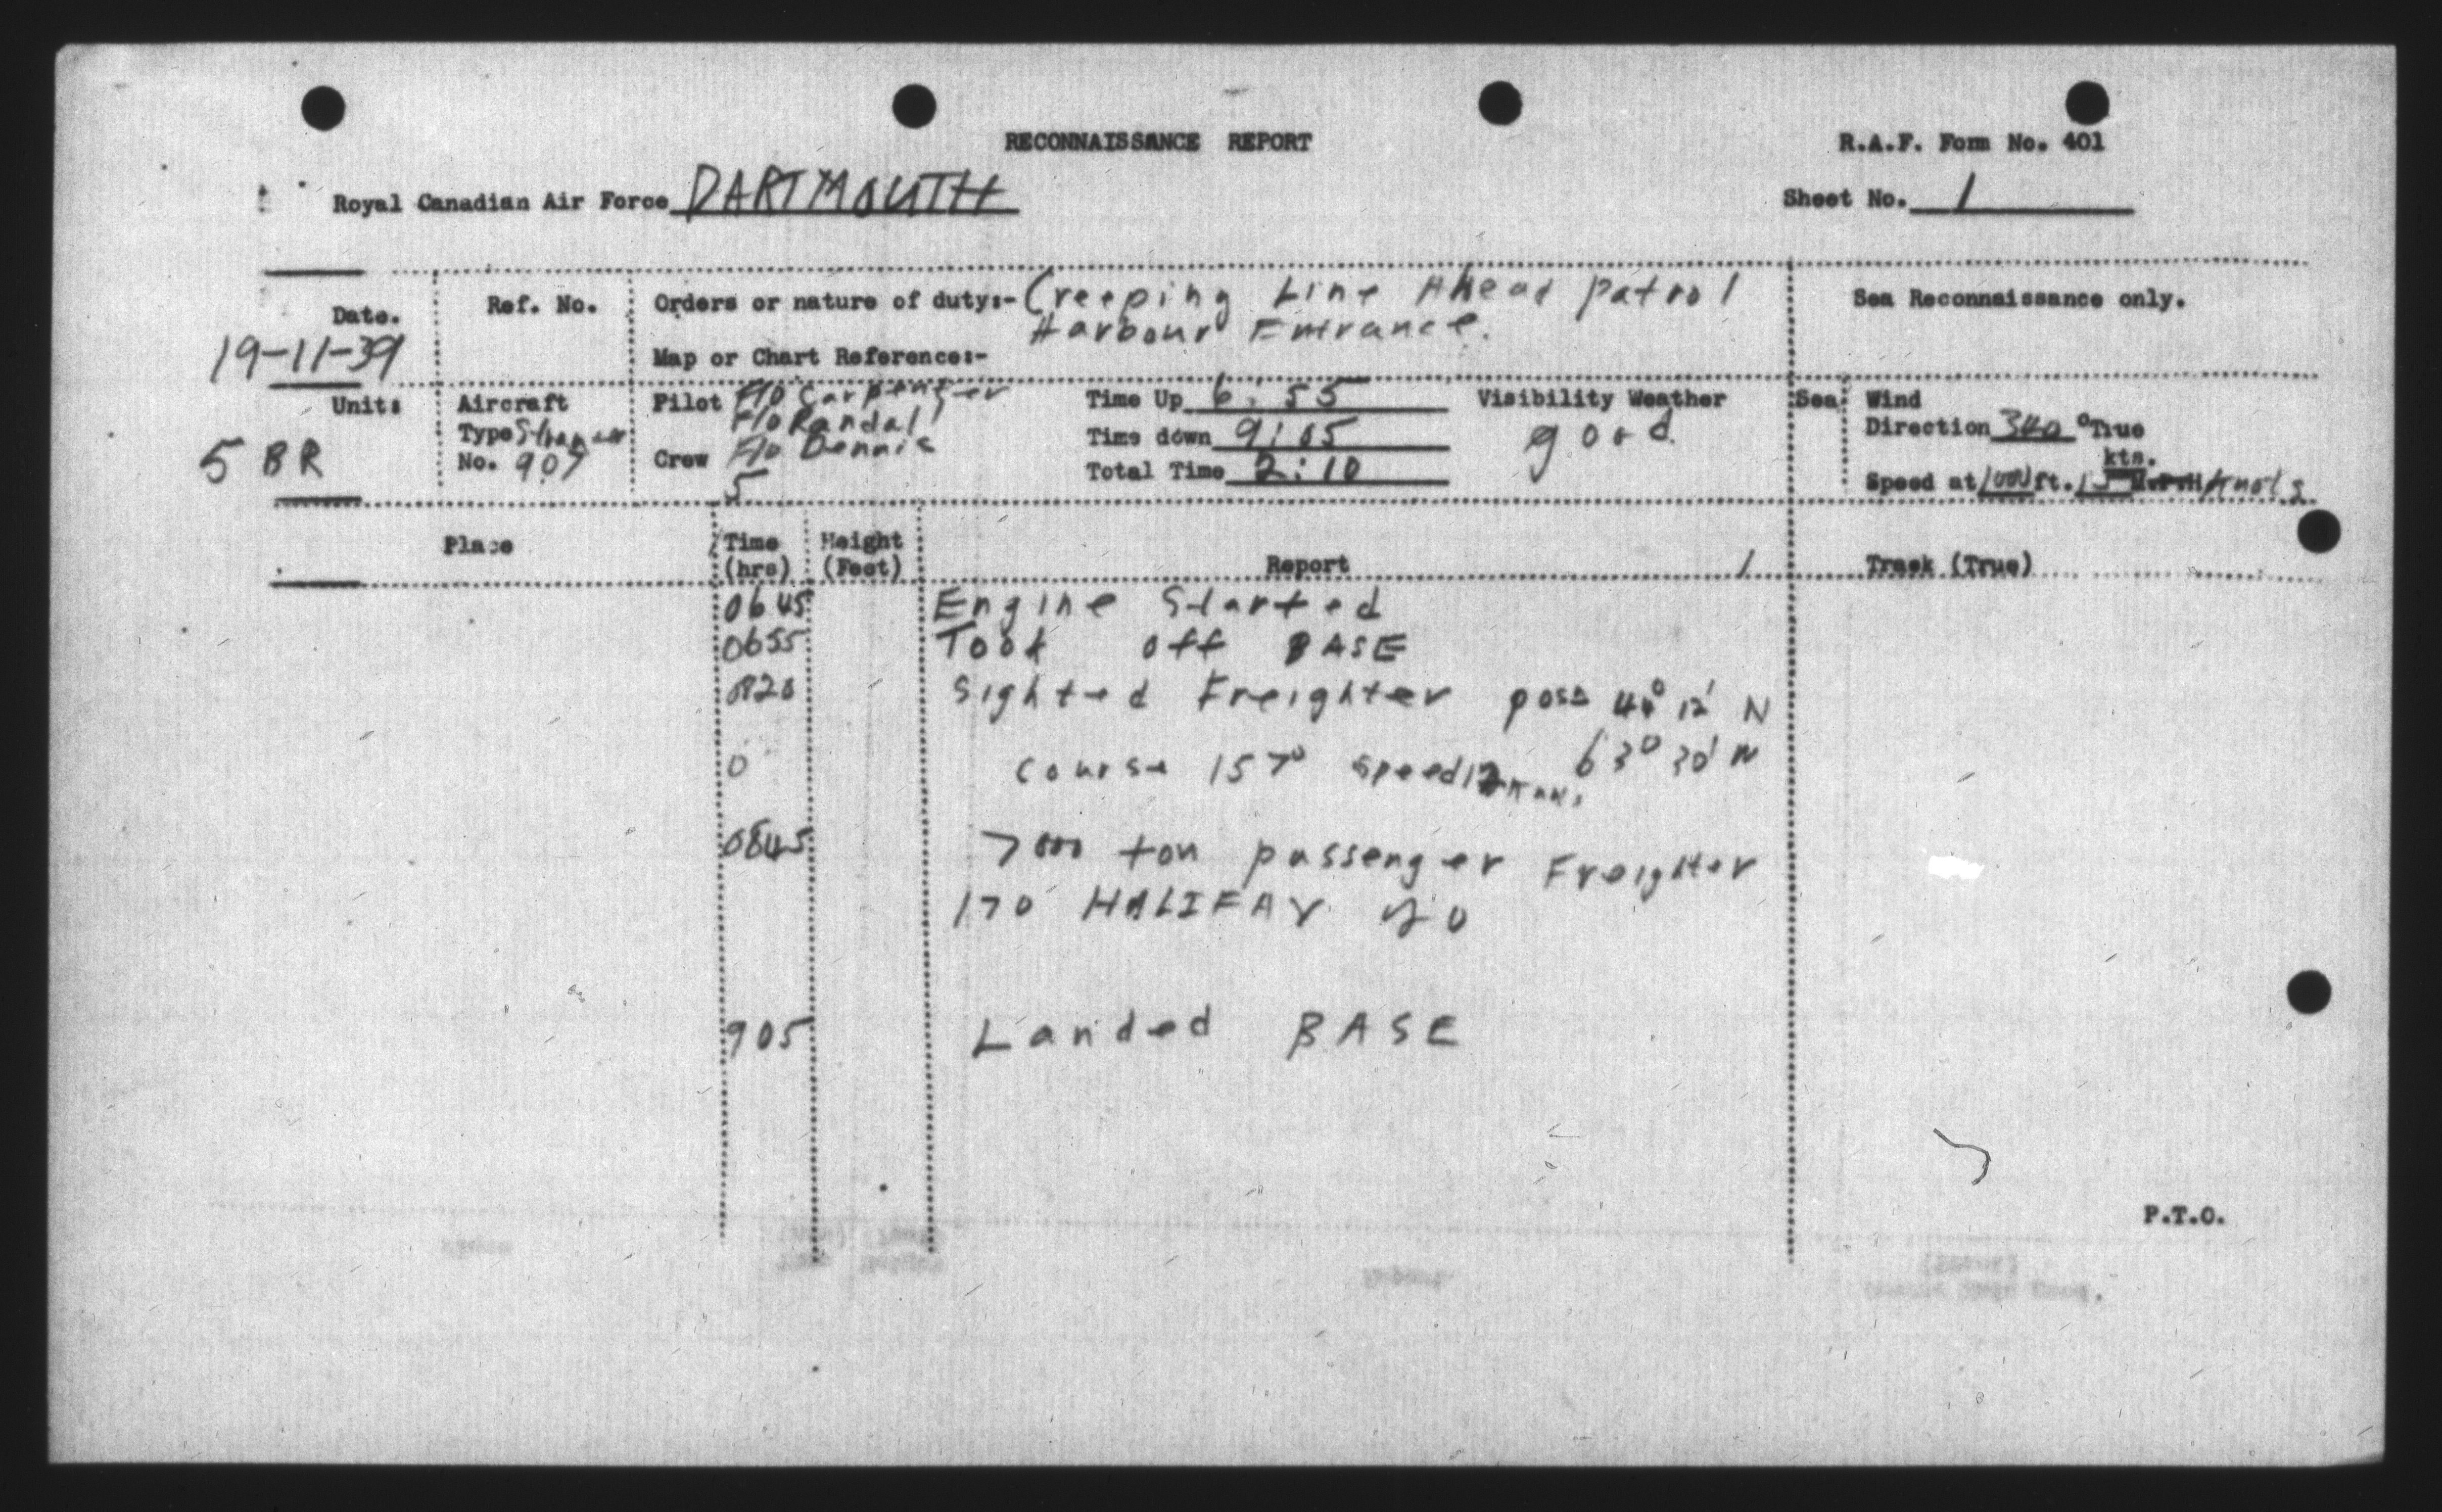 RECONNAISSANCE REPORT
R.A.F. Form No. 401
Royal Canadian Air Force DARTMOUTH
Sheet No. 1
Date. 19-11-39
Ref. No.
Orders or nature of duty:- Creeping Line Ahead patrol
Harbour Entrance.
Map or Chart Reference:-
Sea Reconnaissance only.
Unit: 5 BR
Aircraft
Type Stranraer
No. 907
Pilot F/O Carpenter
F/O Randall
Crew F/O Dennis
5
Time Up 6:55
Time down 9:05
Total Time 2:10
Visibility Weather
good
Sea
Wind
Direction 340 °True
kts.
Speed at 1000 ft. 15 M.P.H. Knots
Place
Time (hrs)
Height (Feet)
Report 1
Track (True)
0645 Engine Started
0655 Took off BASE
0820 Sighted Freighter posn 44° 12' N
63° 30' W
0 course 157° speed 12
0845 7000 ton passenger Freighter
170 HALIFAX 20
905 Landed BASE
P.T.O.